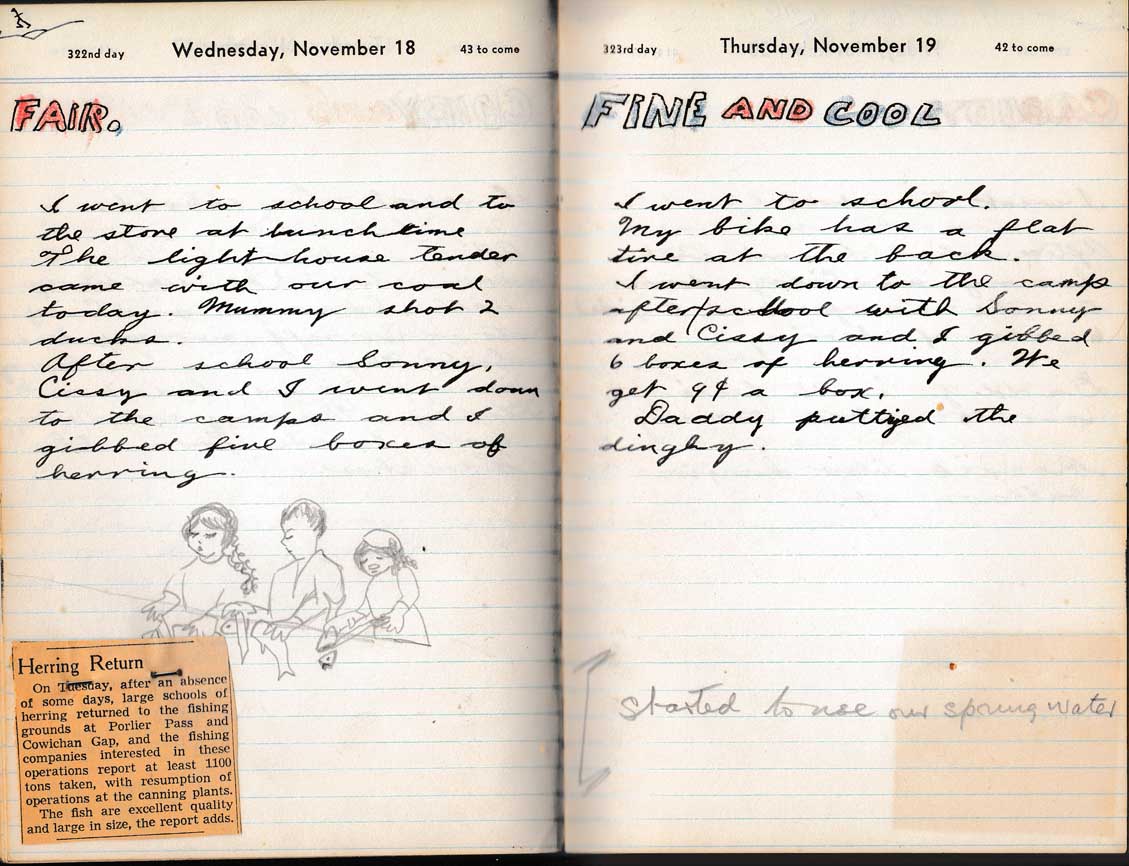 322nd day Wednesday, November 18 43 to come
FAIR.
I went to school and to
the store at lunchtime
The light-house tender
came with our coal
today. Mummy shot 2
ducks.
After school Sonny,
Cissy and I went down
to the camps and I
gibbed five boxes of
herring.
Herring Return
On Tuesday, after an absence
of some days, large schools of
herring returned to the fishing
grounds at Porlier Pass and
Cowichan Gap, and the fishing
companies interested in these
operations report at least 1100
tons taken, with resumption of
operations at the canning plants.
The fish are excellent quality
and large in size, the report adds.
323rd day Thursday, November 19 42 to come
FINE AND COOL
I went to school.
My bike has a flat
tire at the back.
I went down to the camps
after school with Sonny
and Cissy and I gibbed
6 boxes of herring. We
get 9¢ a box.
Daddy puttyed the
dinghy.
Started to use our spring water